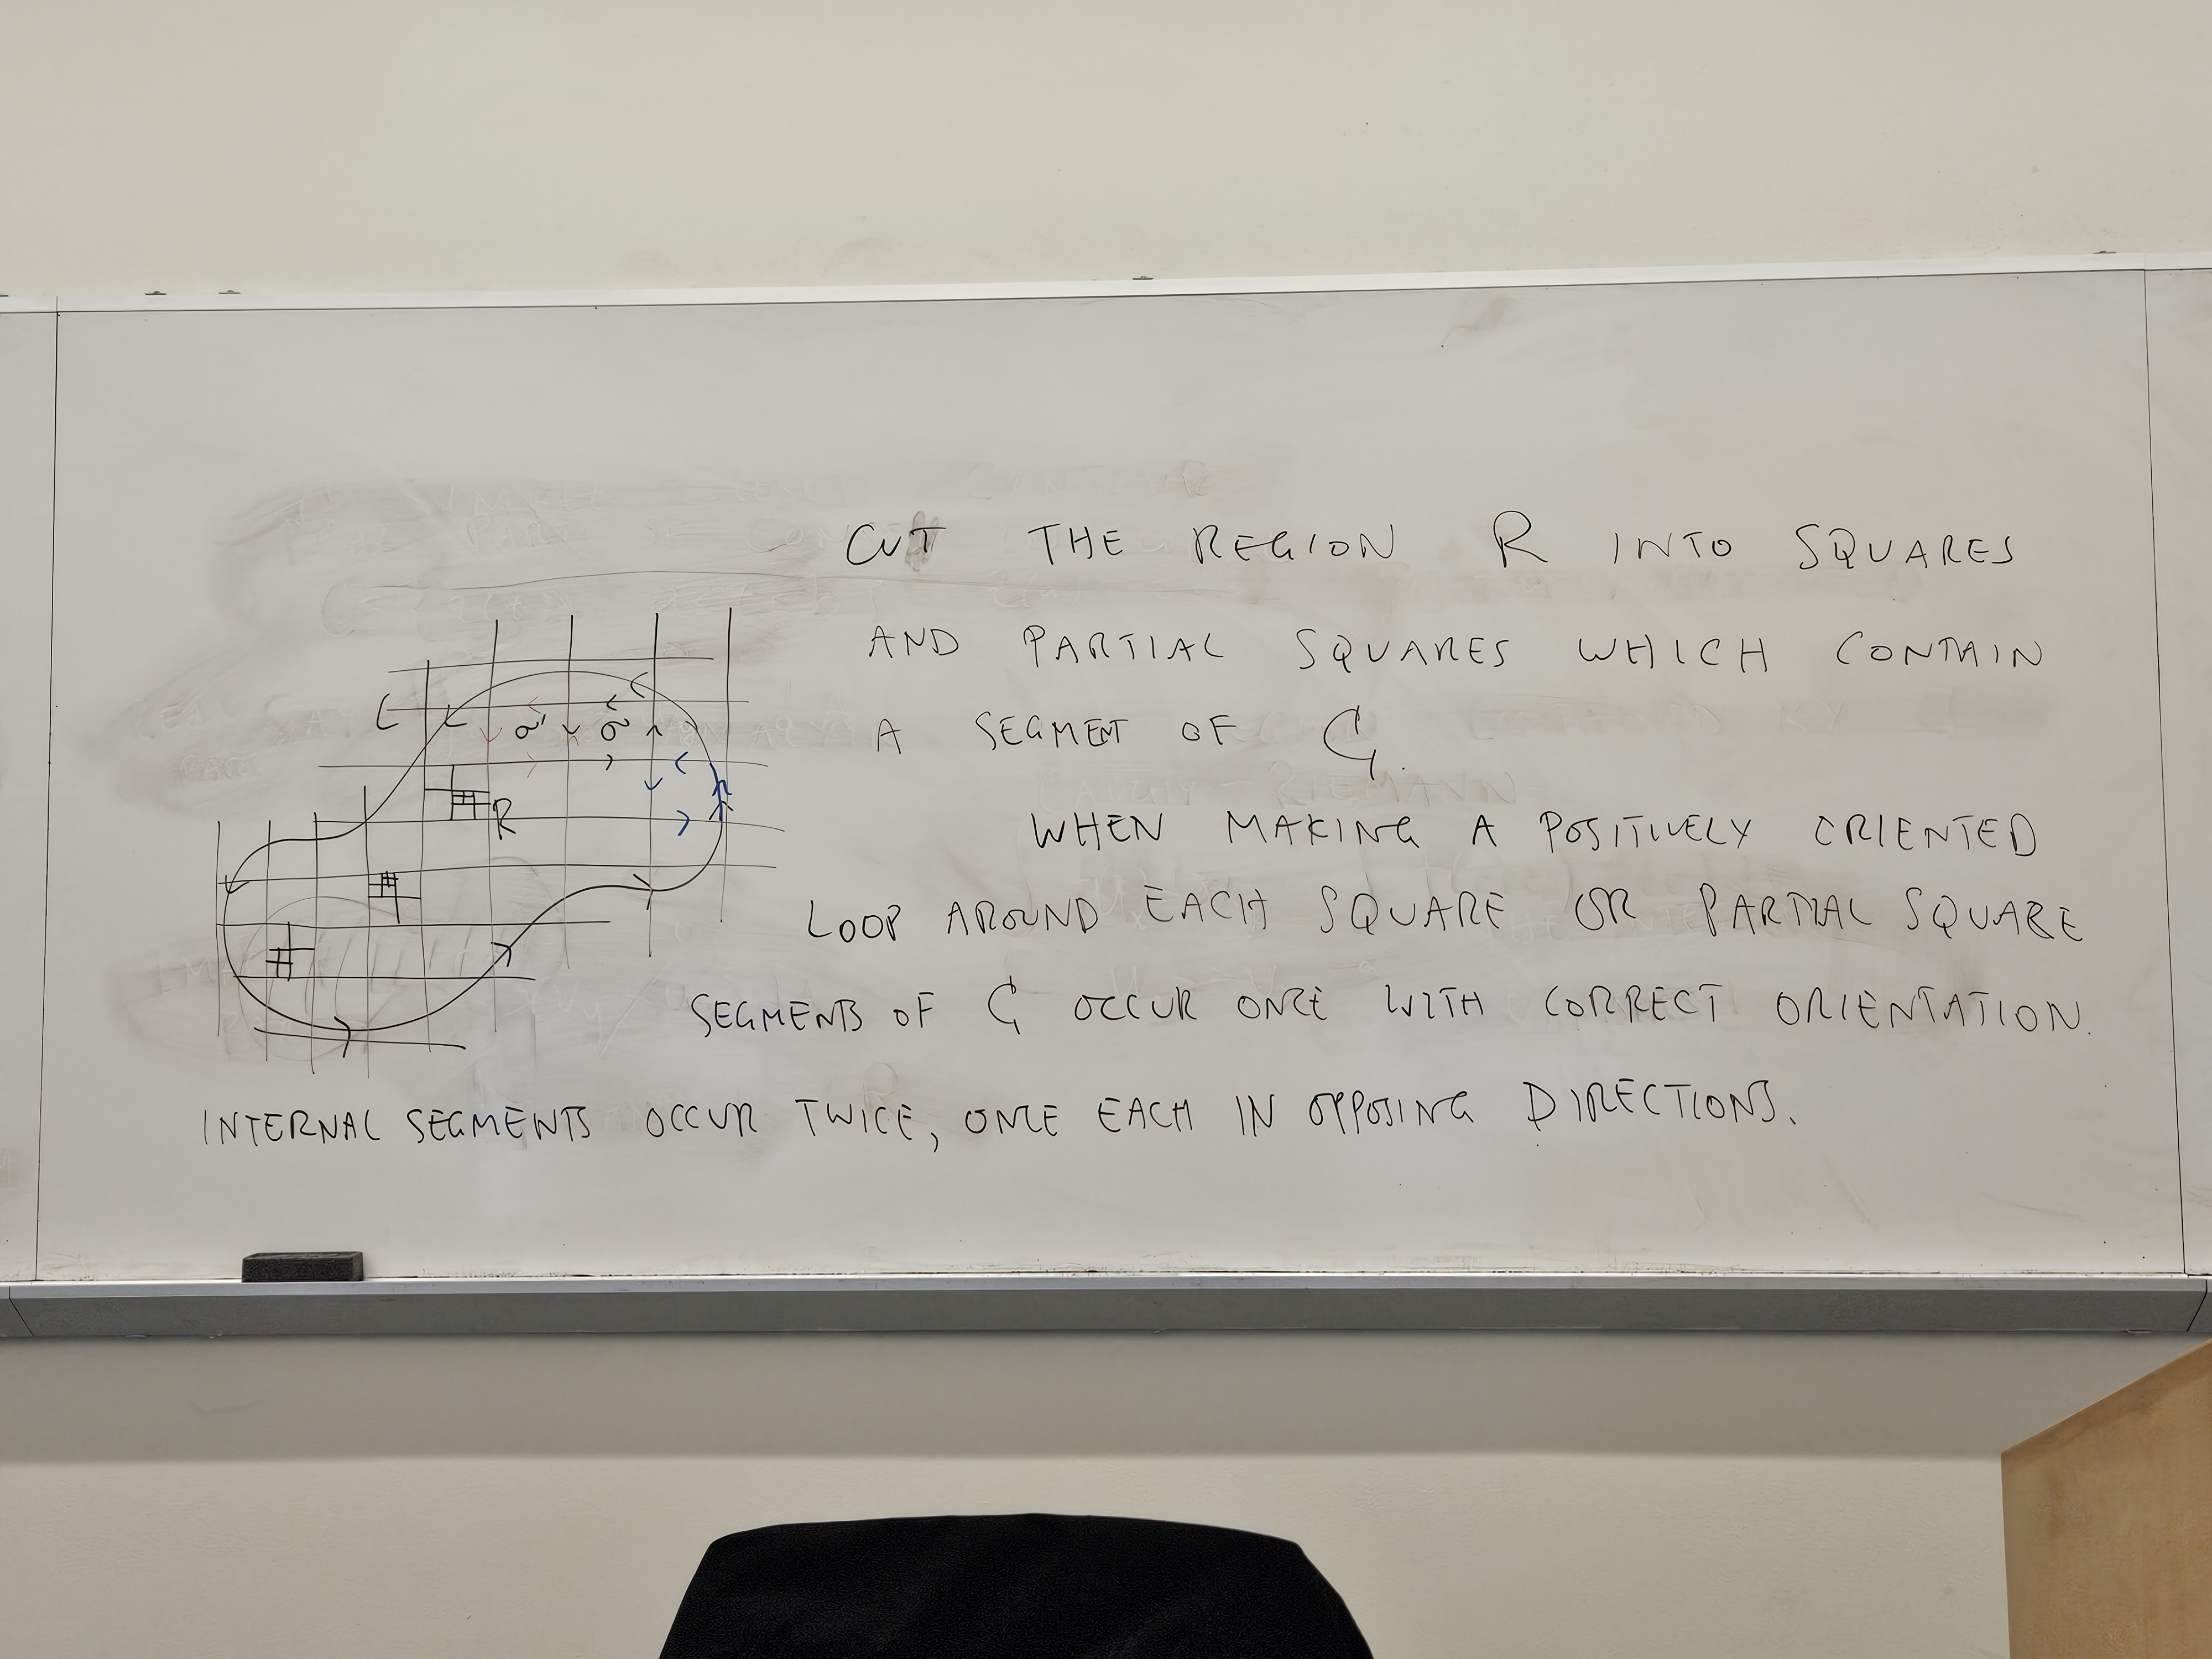 CUT THE REGION R INTO SQUARES
AND PARTIAL SQUARES WHICH CONTAIN
A SEGMENT OF C.
C
σ' σ
R
WHEN MAKING A POSITIVELY ORIENTED
LOOP AROUND EACH SQUARE OR PARTIAL SQUARE
SEGMENTS OF C OCCUR ONCE WITH CORRECT ORIENTATION.
INTERNAL SEGMENTS OCCUR TWICE, ONCE EACH IN OPPOSING DIRECTIONS.